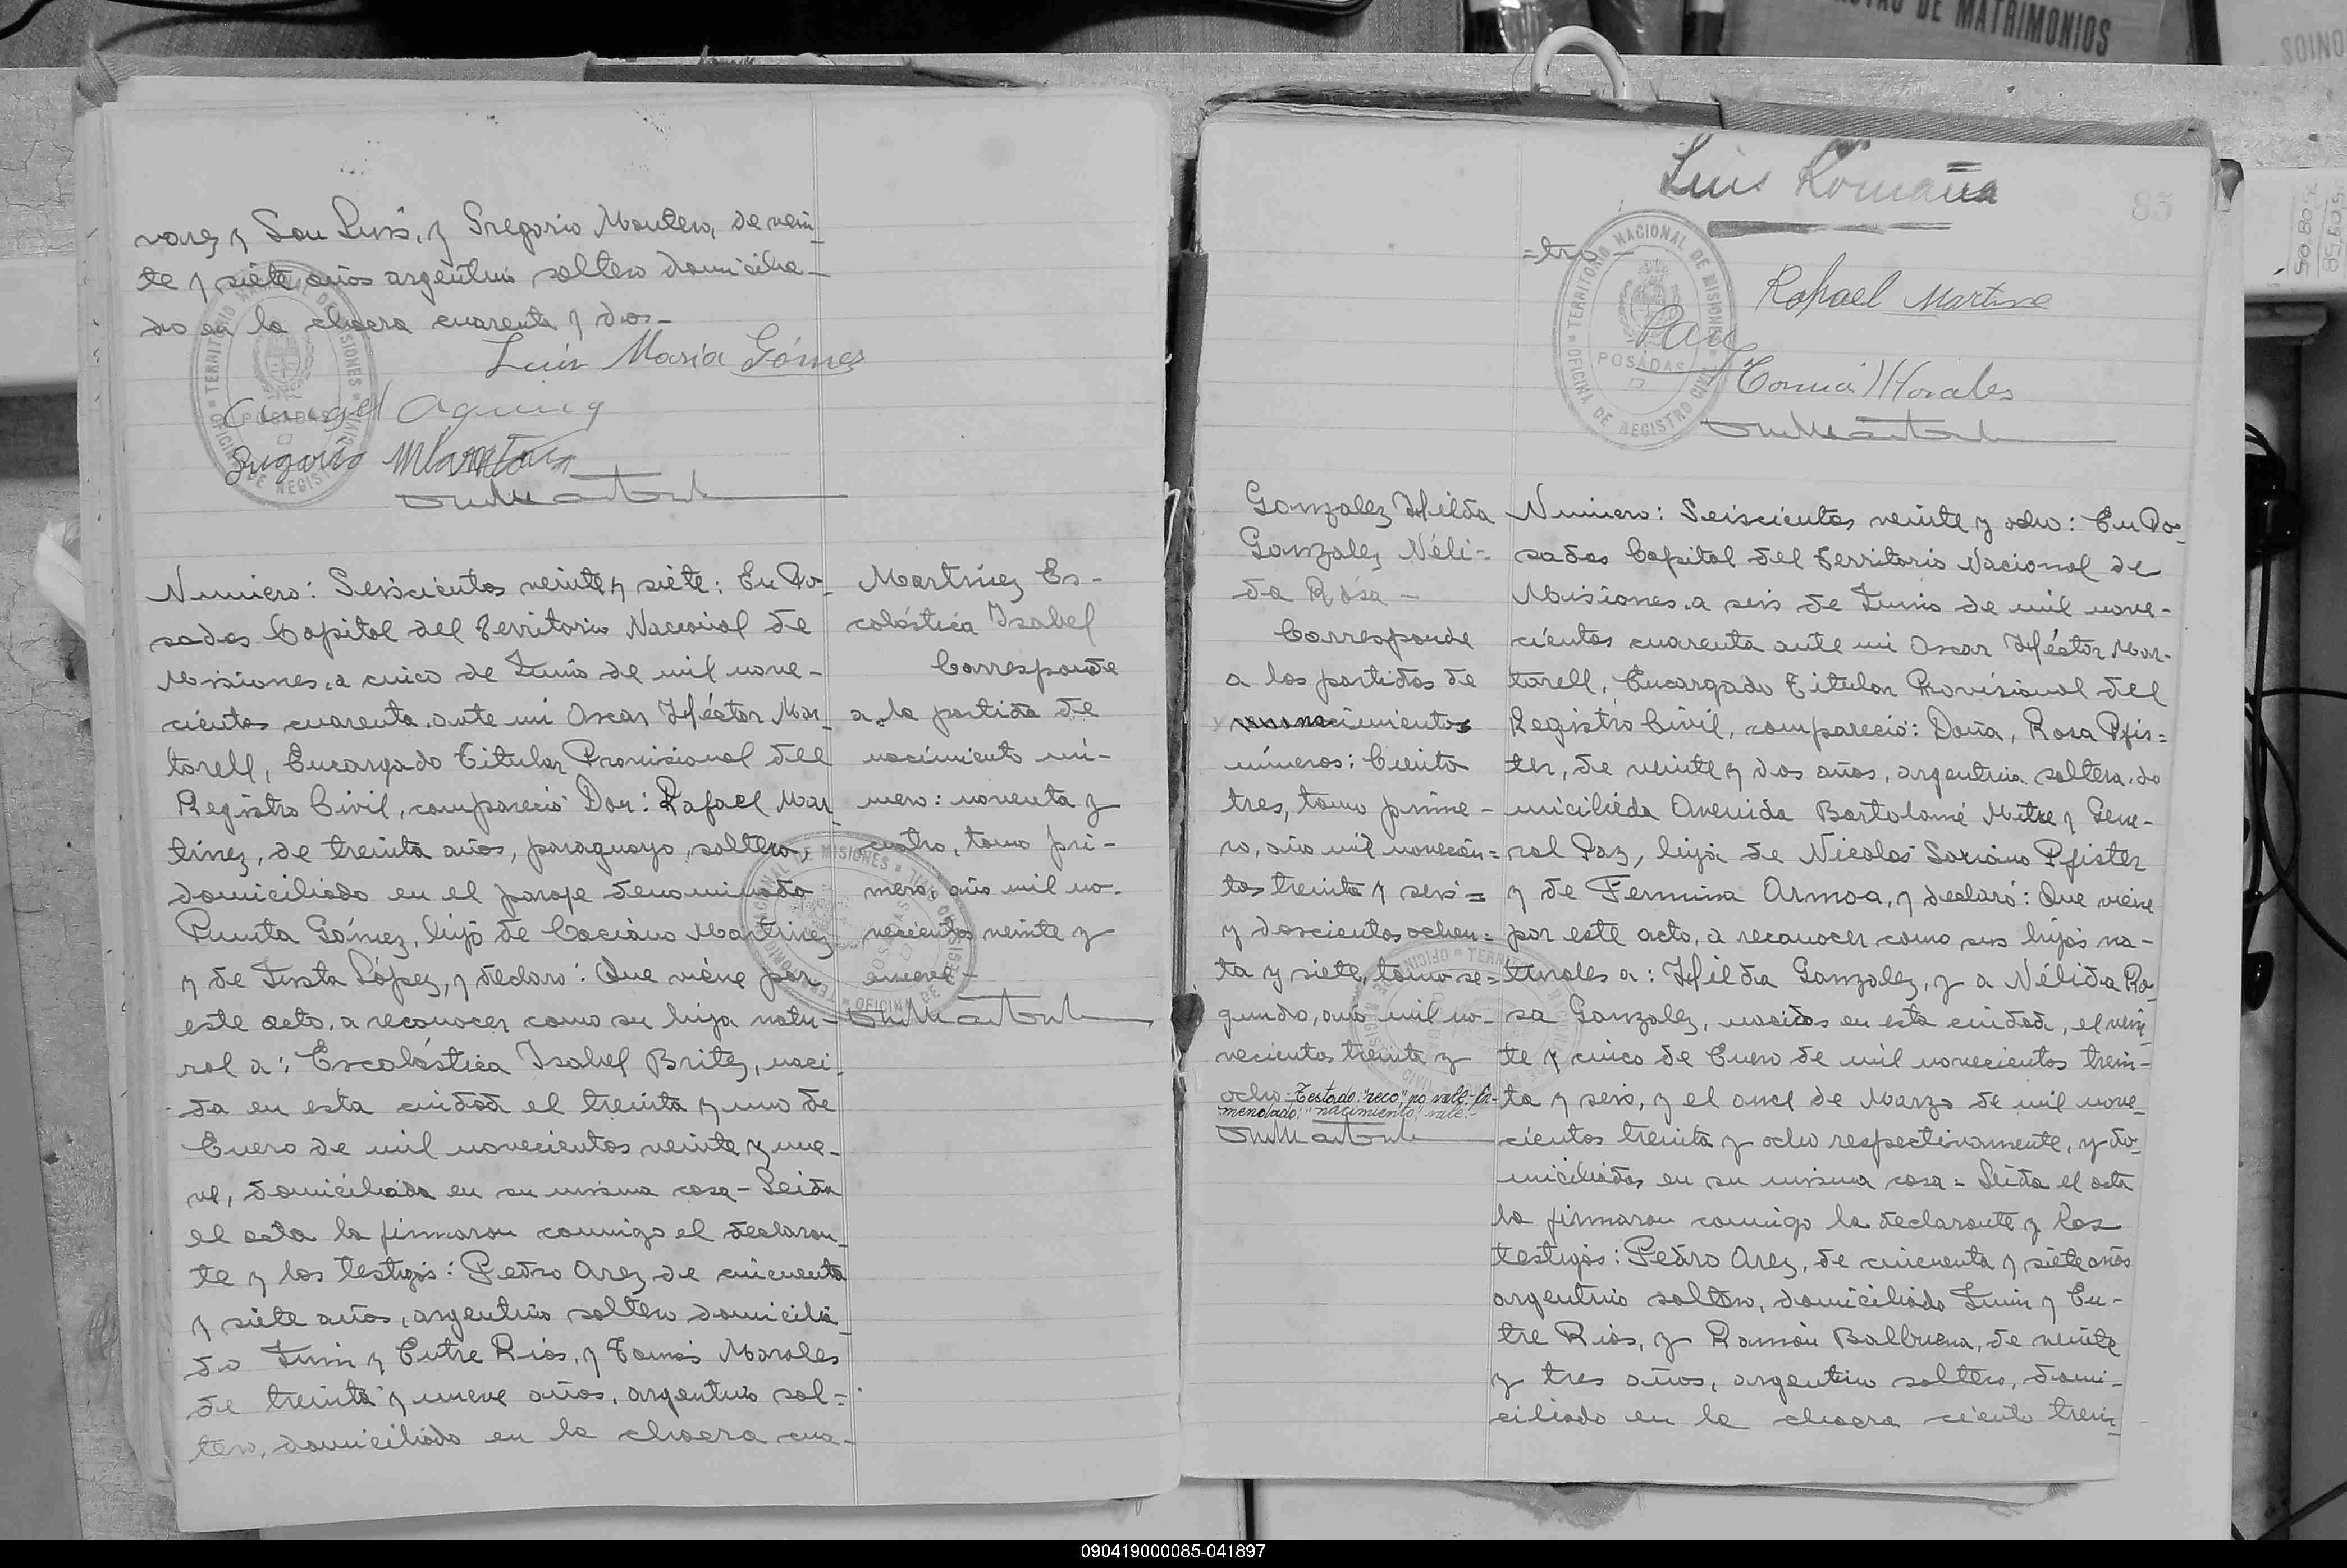 DE MATRIMONIOS
vares y San Luis, y Gregorio Montero, de vein-
te y siete años argentino soltero domicilia-
do en la chacra cuarenta y dos-
Luis María Gómez
Angel
TERRITORIO NACIONAL DE MISIONES
POSADAS
OFICINA DE REGISTRO CIVIL
Numero: Seiscientos veinte y siete: En Po-
sadas Capital del Territorio Nacional de
Misiones, a cinco de Junio de mil nove-
cientos cuarenta, ante mi Oscar Héctor Mar-
torell, Encargado Titular Provisional del
Registro Civil, compareció Don: Rafael Mar-
tínez, de treinta años, paraguayo, soltero,
domiciliado en el paraje denominado
Punta Gómez, hijo de Caciano Martinez
y de Justa López, y declaró: Que viene por
este acto, a reconocer como su hija natu-
ral a: Escolástica Isabel Britez, naci-
da en esta ciudad el treinta y uno de
Enero de mil novecientos veinte y nue-
ve, domiciliada en su misma casa- Leida
el acta la firmaron conmigo el declaran-
te y los testigos: Pedro Arez de cincuenta
y siete años, argentino soltero domicilia-
do Junin y Entre Rios, y Tomás Morales
de treinta y nueve años, argentino sol-
tero, domiciliado en la chacra cua-
Martínez Es-
colástica Isabel
Corresponde
a la partida de
nacimiento nú-
mero: noventa y
cuatro, tomo pri-
mero, año mil no-
vecientos veinte y
nueve-
Luis Romaña
85
=tro-
Rafael Martine
Paz
Tomás Morales
TERRITORIO NACIONAL DE MISIONES
POSADAS
OFICINA DE REGISTRO CIVIL
Gonzalez Hilda
Gonzalez Néli-
da Rosa-
Corresponde
a las partidas de
nacimientos
números: Ciento
tres, tomo prime-
ro, año mil novecien=
tos treinta y seis=
y doscientos ochen=
ta y siete, tomo se=
gundo, año mil no-
vecientos treinta y
ocho-Testado: "reco", no vale-En-
mendado: "nacimiento", vale-
Numero: Seiscientos veinte y ocho: En Po-
sadas Capital del Territorio Nacional de
Misiones, a seis de Junio de mil nove-
cientos cuarenta ante mi Oscar Héctor Mar-
torell, Encargado Titular Provisional del
Registro Civil, compareció: Doña, Rosa Pfis=
ter, de veinte y dos años, argentina soltera, do
miciliada Avenida Bartolomé Mitre y Gene-
ral Paz, hija de Nicolas Soriano Pfister
y de Fermina Armoa, y declaró: Que viene
por este acto, a reconocer como sus hijas na-
turales a: Hilda Gonzalez, y a Nélida Ro-
sa Gonzalez, nacidas en esta ciudad, el vein-
te y cinco de Enero de mil novecientos trein-
ta y seis, y el once de Marzo de mil nove-
cientos treinta y ocho respectivamente, y do-
miciliadas en su misma casa= Leida el acta
la firmaron conmigo la declarante y los
testigos: Pedro Arez, de cincuenta y siete años
argentino soltero, domiciliado Junin y En-
tre Rios, y Ramón Balbuena, de veinte
y tres años, argentino soltero, domi-
ciliado en la chacra ciento trein-
090419000085-041897